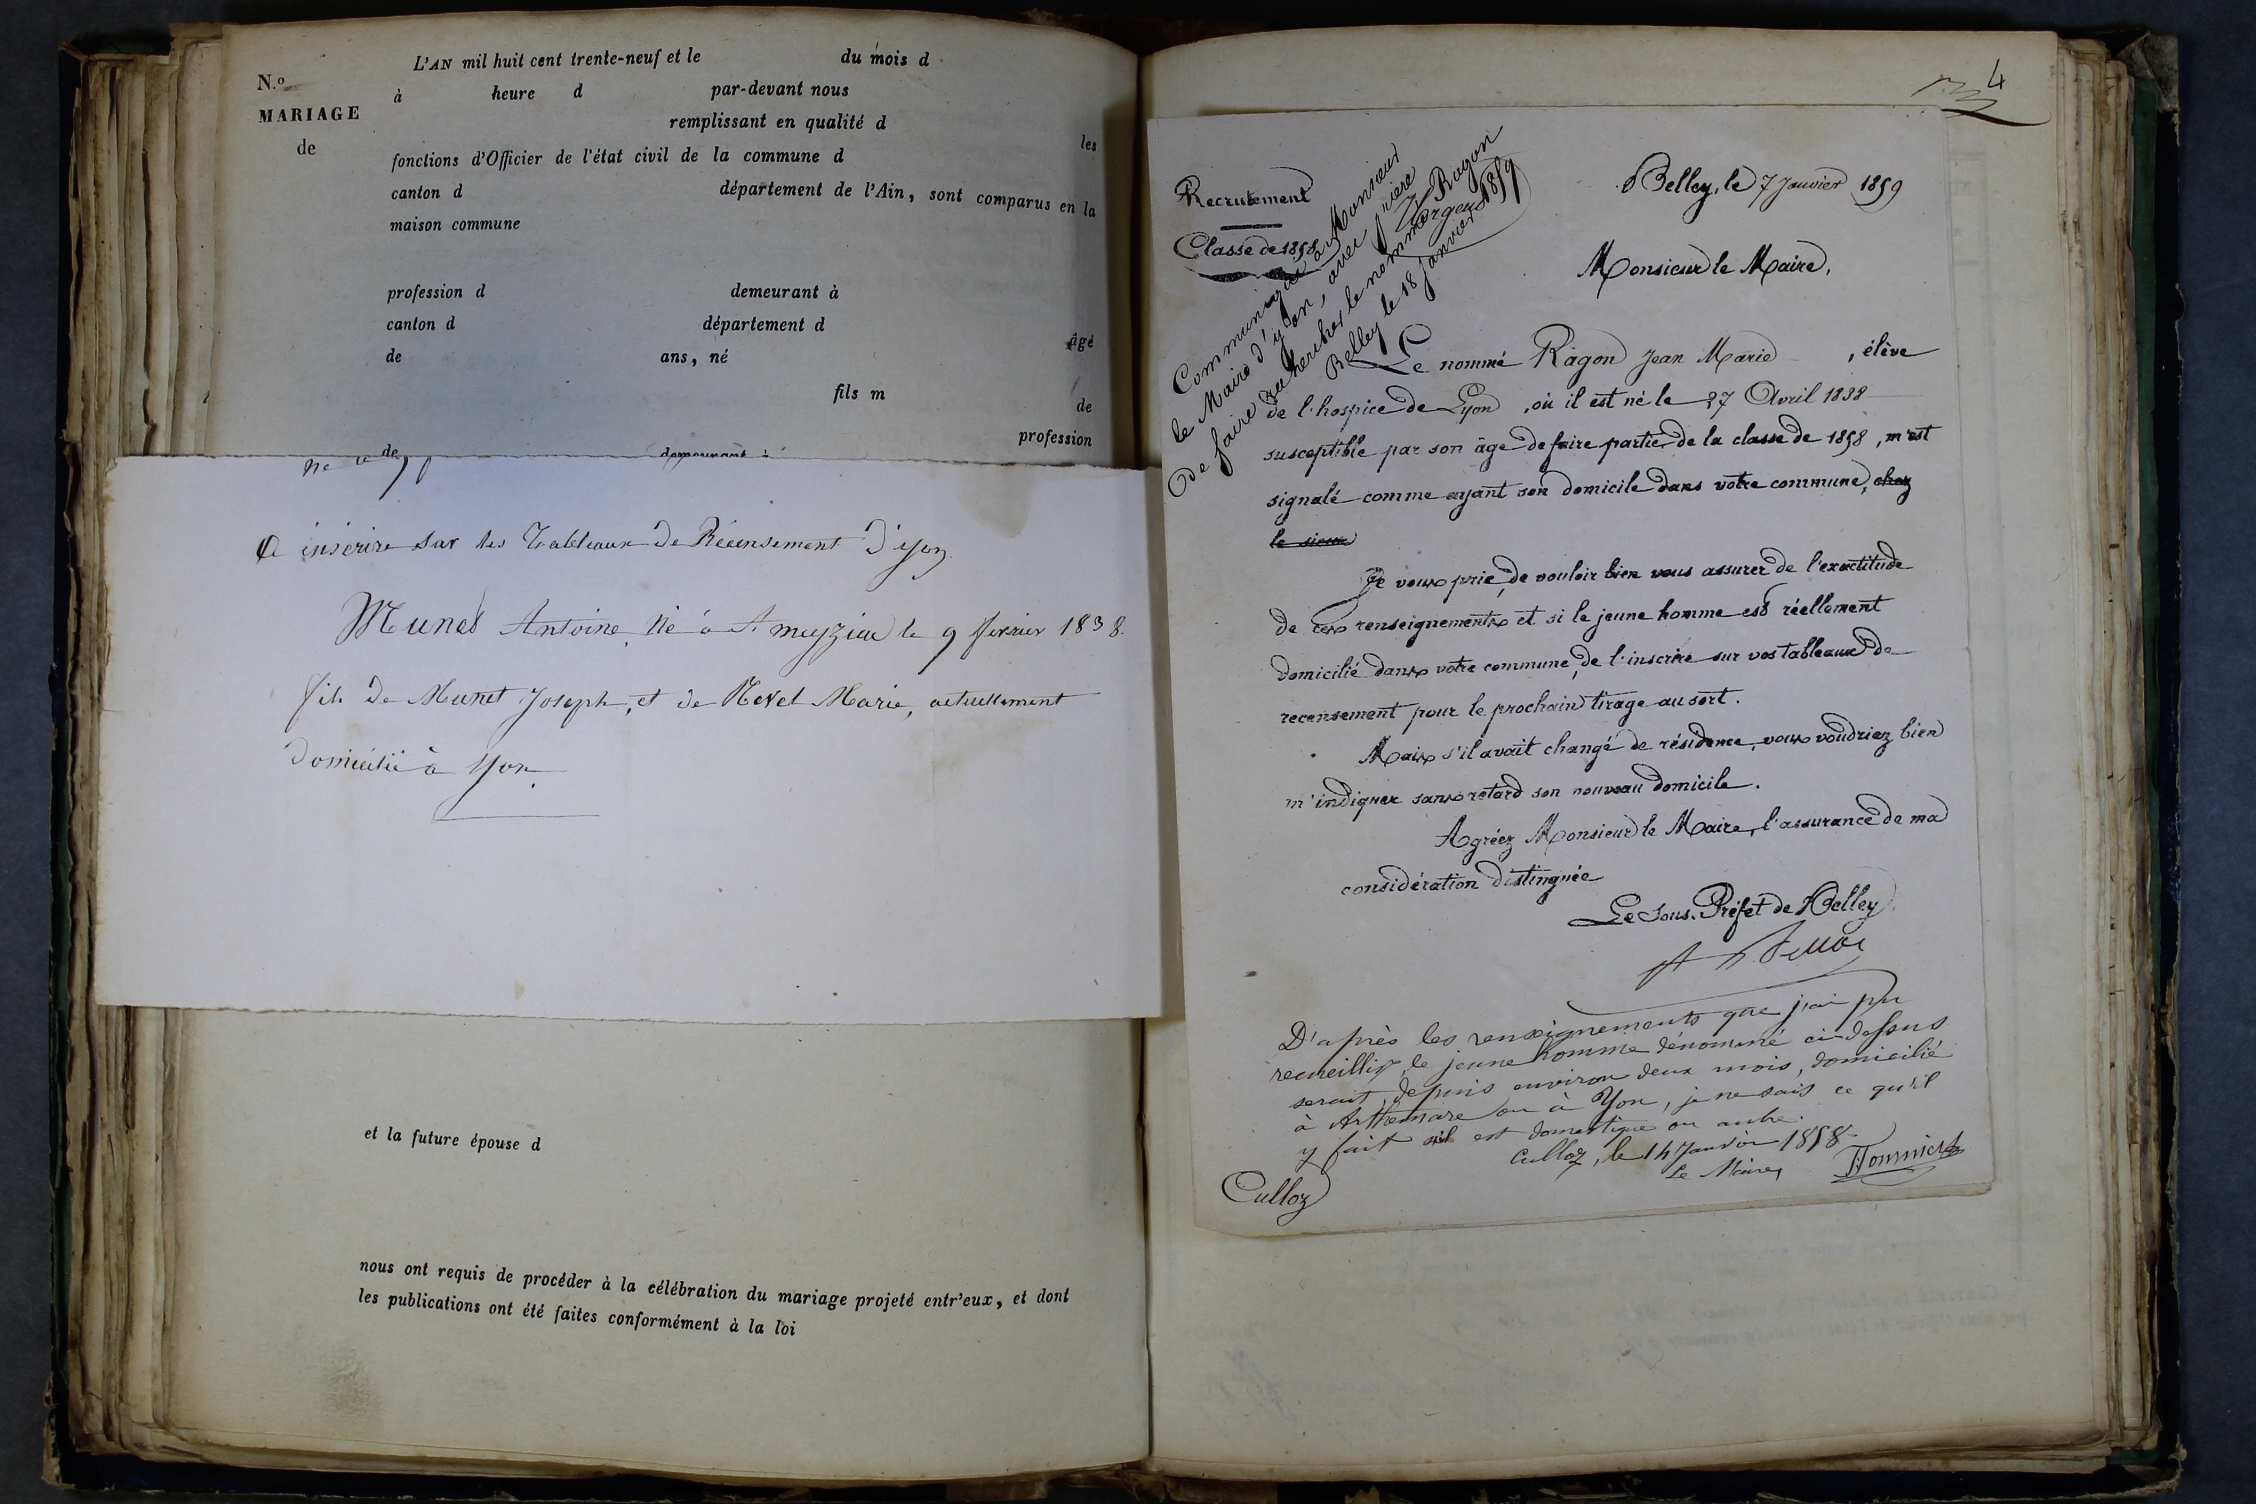 N.o
MARIAGE
de
L'AN mil huit cent trente-neuf et le du mois d
à heure d par-devant nous
remplissant en qualité d les
fonctions d'Officier de l'état civil de la commune d
canton d département de l'Ain, sont comparus en la
maison commune
profession d demeurant à
canton d département d âgé
de ans, né
fils m de
profession
demeurant à
A inscrire sur les Tableaux de Récensement d'yon
Munet Antoine, né à St meyziau le 9 fevrier 1838.
fils de Munet Joseph, et de Revel Marie, actuellement
domicilié à Yon.
et la future épouse d
nous ont requis de procéder à la célébration du mariage projeté entr'eux, et dont
les publications ont été faites conformément à la loi
4
Recrutement
Classe de 1858
Communiqué à Monsieur
le Maire d'yon, avec prière
de faire rechercher le nommé Ragon
Belley le 18 janvier 1859
Belley, le 7 Janvier 1859
Monsieur le Maire,
Le nommé Ragon Jean Marie, élève
de l'hospice de Lyon, où il est né le 27 Avril 1838
susceptible par son âge de faire partie de la classe de 1858, m'est
signalé comme ayant son domicile dans votre commune, chez
le sieur
Je vous prie, de vouloir bien vous assurer de l'exactitude
de ces renseignements et si le jeune homme est réellement
domicilié dans votre commune, de l'inscrire sur vos tableaux de
recensement pour le prochain tirage au sort.
Mais s'il avait changé de résidence, vous voudriez bien
m'indiquer sans retard son nouveau domicile.
Agréez Monsieur le Maire, l'assurance de ma
considération distinguée
Le Sous-Préfet de Belley
D'après les renseignements que j'ai pu
recueillir, le jeune homme dénommé ci-dessus
serait, depuis environ deux mois, domicilié
à Arthemare ou à Yon, je ne sais ce qu'il
y fait s'il est domestique ou autre.
Culloz, le 14 Janvier 1858
Le Maire,
Culloz